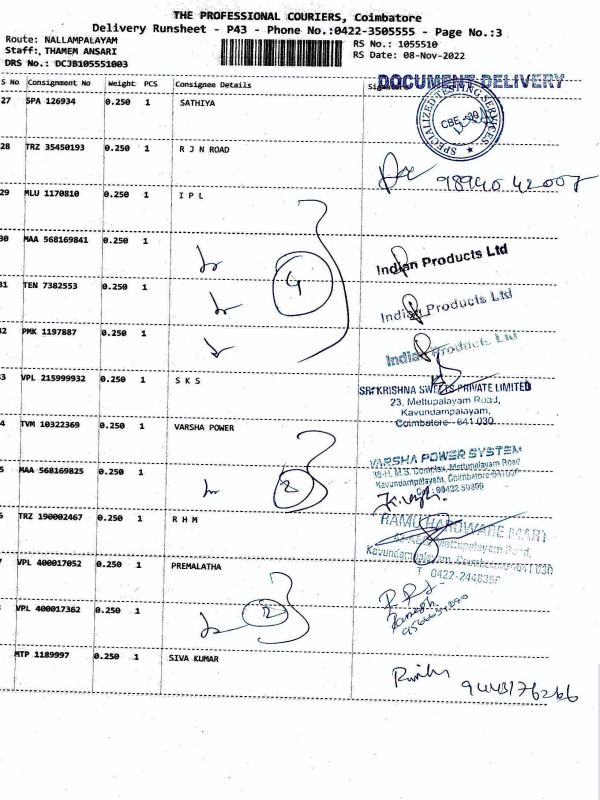 THE PROFESSIONAL COURIERS, Coimbatore
Delivery Runsheet - P43 - Phone No.:0422-3505555 - Page No.:3
Route: NALLAMPALAYAM
Staff:, THAMEM ANSARI
DRS No.: DCJB105551003
RS No.: 1055510
RS Date: 08-Nov-2022
S No Consignment No Weight PCS Consignee Details
DOCUMENT DELIVERY
27 SPA 126934 0.250 1 SATHIYA
SPECIALIZED TESTING SERVICES
28 TRZ 35450193 0.250 1 R J N ROAD
98940 42007
29 MLU 1170810 0.250 1 I P L
30 MAA 568169841 0.250 1
4
Indian Products Ltd
31 TEN 7382553 0.250 1
Indian Products Ltd
32 PMK 1197887 0.250 1
Indian Products Ltd
33 VPL 215999932 0.250 1 S K S
SRI KRISHNA SWEETS PRIVATE LIMITED
23, Mettupalayam Road,
Kavundampalayam,
Coimbatore - 641 030
4 TVM 10322369 0.250 1 VARSHA POWER
VARSHA POWER SYSTEM
M.S. Complex, Mettupalayam Road
Kavundampalayam, Coimbatore
5 MAA 568169825 0.250 1
2
6 TRZ 190002467 0.250 1 R H M
RAMU HARDWARE MART
Mettupalayam Road,
Kavundampalayam, Coimbatore
7 VPL 400017052 0.250 1 PREMALATHA
VPL 400017362 0.250 1
2
MTP 1189997 0.250 1 SIVA KUMAR